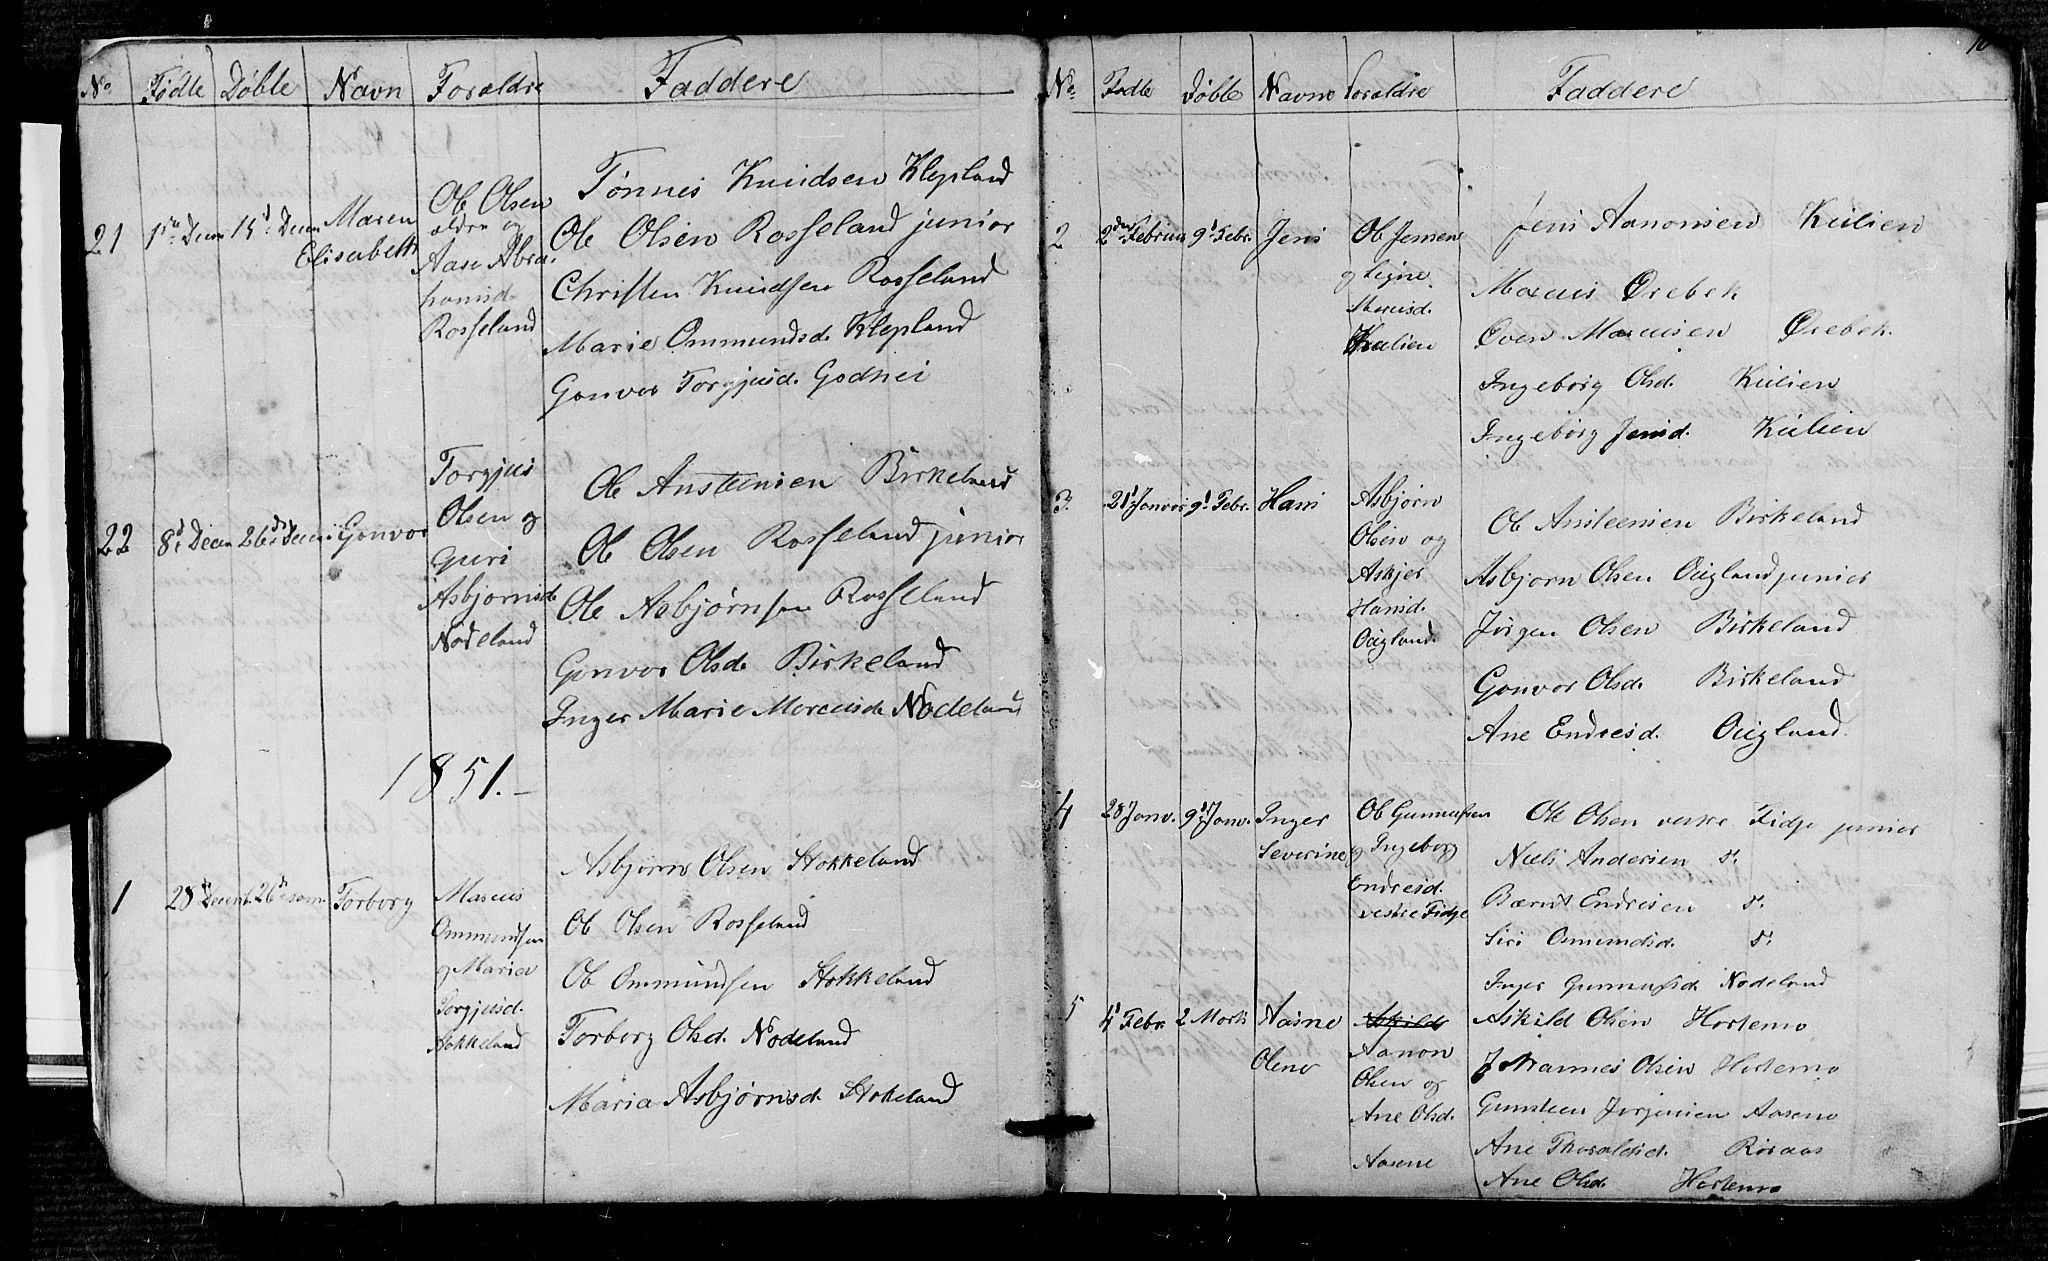 No Fødte Døbte Navn Forældre Faddere
21 1ste Decm 15d Decm Maren Elisabeth
Ole Olsen
ældre og
Aase Abra-
hamsd.
Rosseland
Tønnes Knudsen Klepland
Ole Olsen Rosseland junior
Christen Knudsen Rosseland
Marie Ommundsd. Klepland
Gonvor Torgjusd. Godhei
22 8d Decm 26de Decm Gonvor
Torgjus
Olsen og
Guri
Asbjørnsd.
Nødeland
Ole Ansteensen Birkeland
Ole Olsen Rosseland junior
Ole Asbjørnsen Rosseland
Gonvor Olsd. Birkeland
Inger Marie Marcusd. Nodeland
1851.-
1 28d Decemb. 26d Torborg
Marcus
Ommundsen
og Maria
Torgjusd.
Stokkeland
Asbjørn Olsen Stokkeland
Ole Olsen Rosseland
Ole Ommundsen Stokkeland
Torborg Olsd. Nodeland
Maria Asbjørnsd. Stokeland
10
No Fødte Døbte Navne Foraldre Faddere
2 2den Februar 9d Febr. Jens
Ole Jensen
og Signe
Marcusd.
Kulien
Jens Aanonsen Kulien
Marcus Ørebek
Oven Marcusen Ørebek
Ingeborg Olsd. Kulien
Ingeborg Jensd. Kulien
3. 21d Janvar 9d Febr. Hans
Asbjørn
Olsen og
Askjer
Hansd.
Øigland.
Ole Ansteensen Birkeland
Asbjorn Olsen Øigland junior
Jørgen Olsen Birkeland
Gonvor Olsd. Birkeland
Ane Endresd. Øigland.
4 28 Janv. 9d Janv. Inger
Severine
Ole Gunnufsen
og Ingeborg
Endresd.
vestre Fidje
Ole Olsen vestre Fidje junior
Neels Andersen do
Bærnt Endresen do
Siri Omundsd. do
Inger Gunnufsd. Nodeland
5 4d Febr 2 Marts Aasne
Olene
Askild
Aanon
Olsen og
Ane Olsd.
Aasene
Askild Olsen Hortemo
Johannes Olsen Hortemo
Gunsteen Jørgensen Aasene
Ane Thoraldsd. Rosaas
Ane Olsd. Hortemo